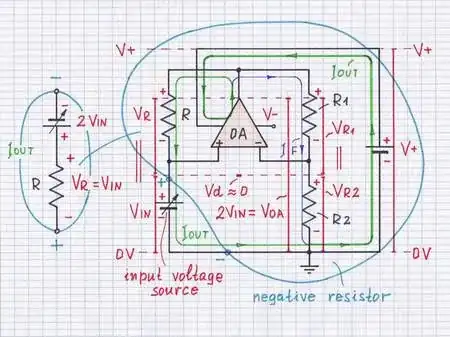 V+
V+
+
IOUT
-
2VIN
IOUT
R
VR = VIN
+
-
+
VR
-
R
OA
V-
+
-
IF
+
R1
-
VR1
+
V+
-
VR2
R2
Vd ≈ 0
2VIN = VOA
VIN
IOUT
0V
0V
input voltage
source
negative resistor